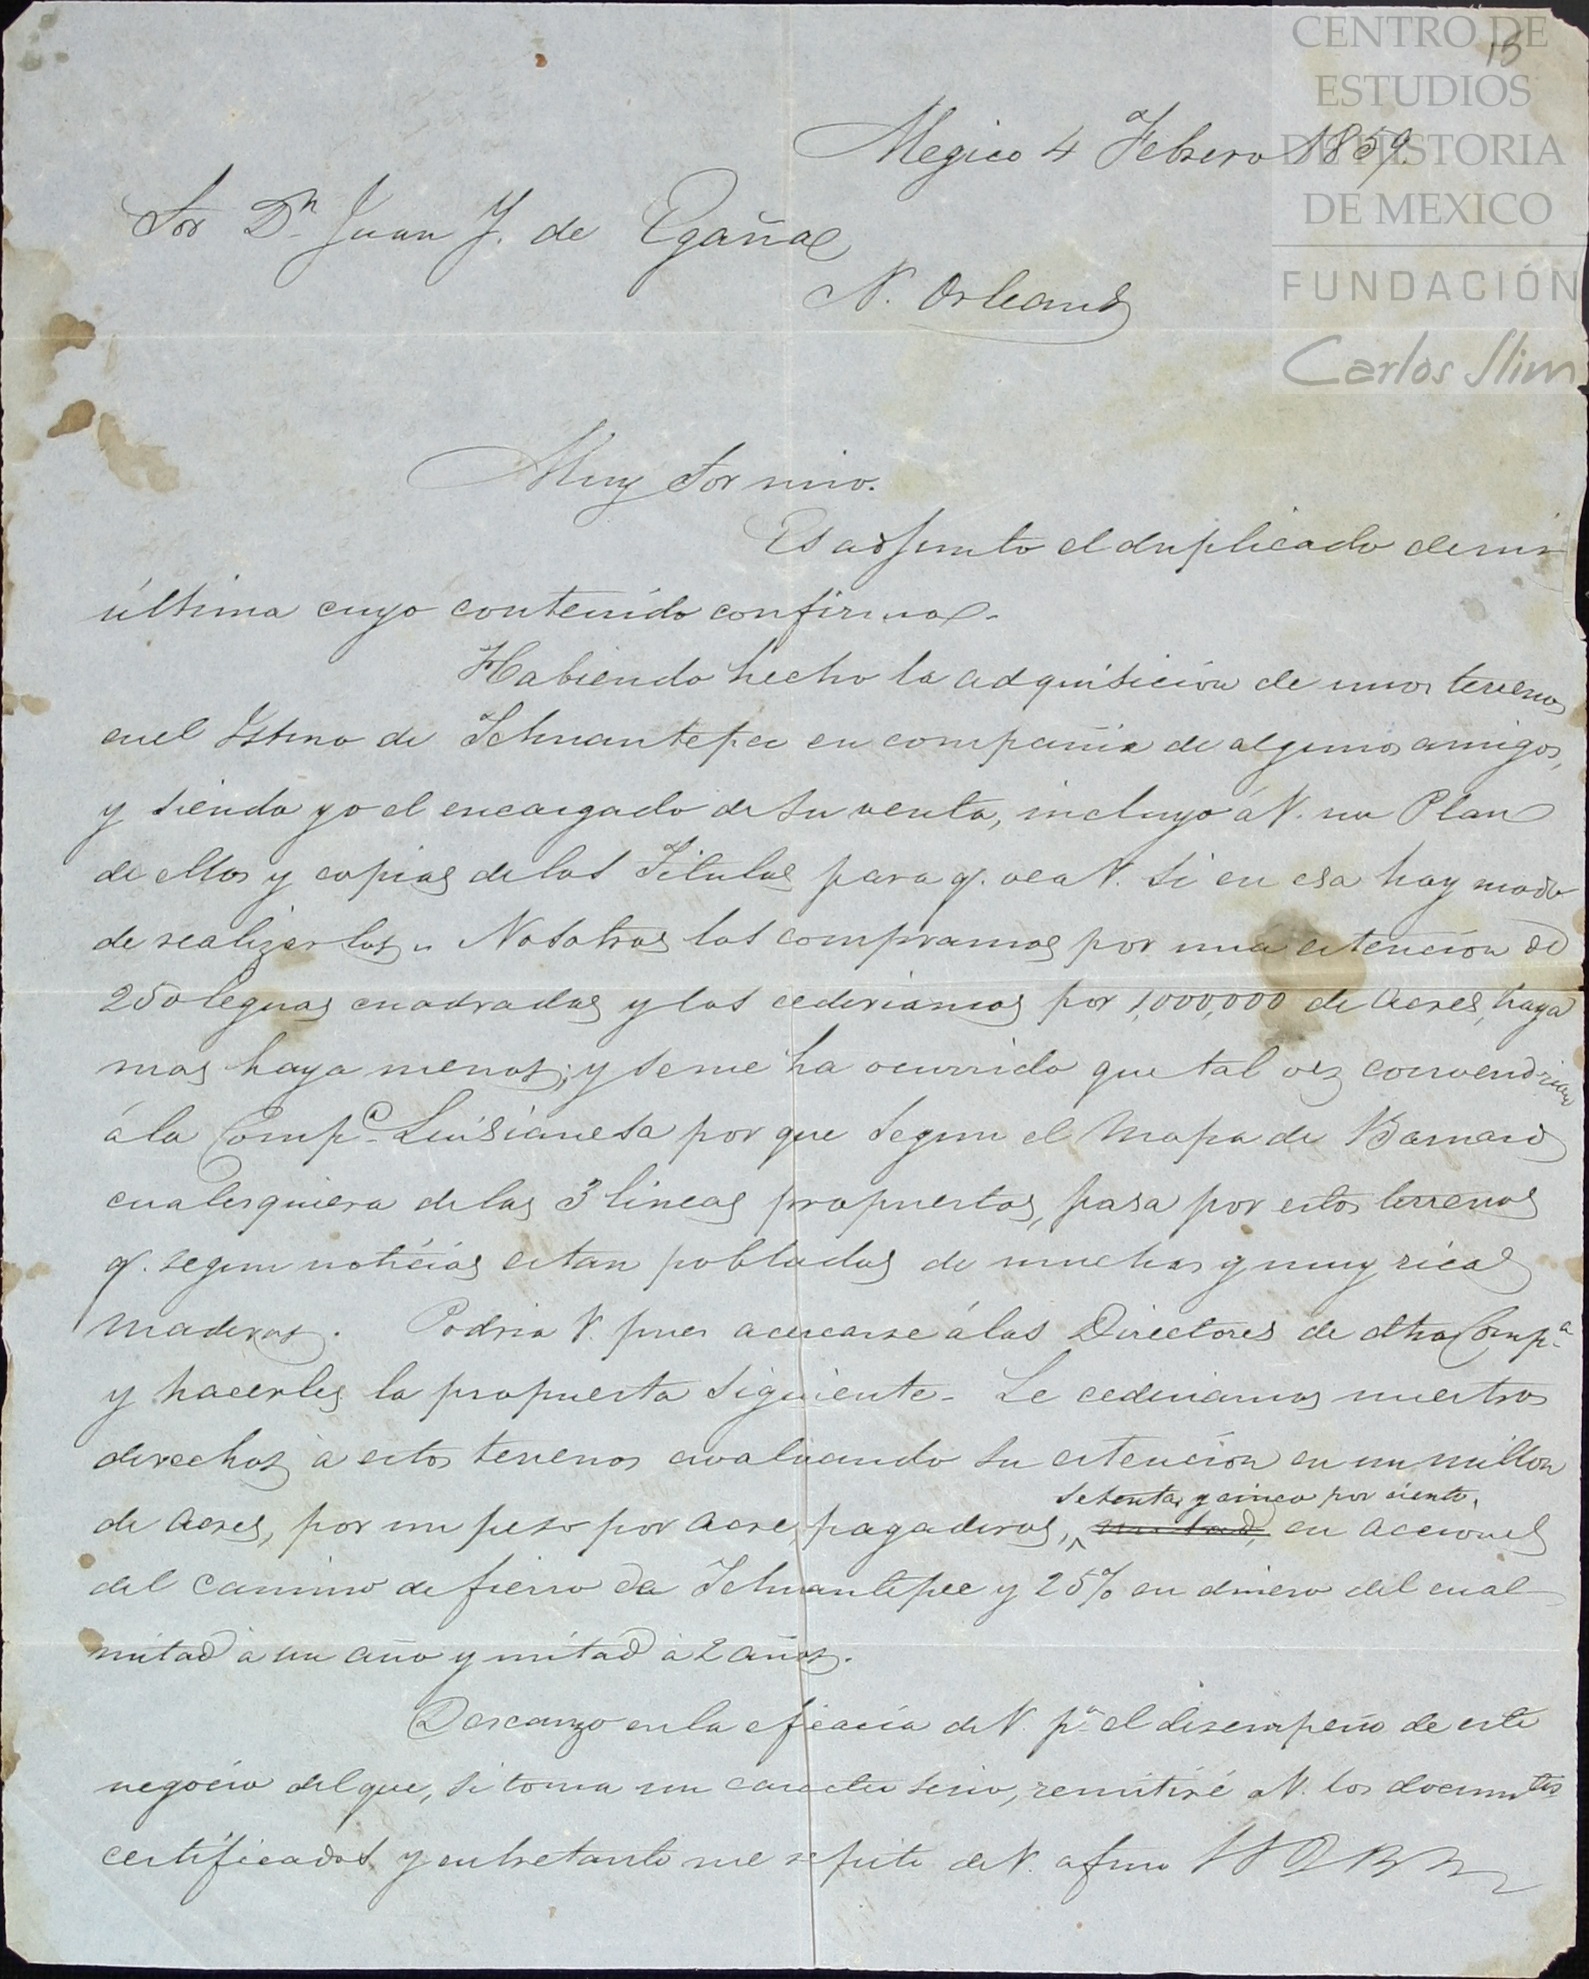 CENTRO DE
ESTUDIOS
DE HISTORIA
DE MEXICO
FUNDACIÓN
Carlos Slim
15
Megico 4 Febrero 1859.
Sor Dn Juan Y. de Egaña
N. Orleans
Muy Sor mio.
Es adjunto el duplicado de mi
última cuyo contenido confirmo.
Habiendo hecho la adquisicion de unos terrenos
en el Istmo de Tehuantepec en compañia de algunos amigos,
y siendo yo el encargado de su venta, incluyo á V. un Plan
de ellos y copias de los Titulos para q. vea V. si en esa hay modo
de realizarlos. Nosotros los compramos por una estencion de
250 leguas cuadradas y los cederiamos por 1,000,000 de Acres, haya
mas haya menos; y se me ha ocurrido que tal vez convendrian
á la Compa. Luisianesa por que segun el Mapa de Barnard
cualesquiera de las 3 lineas propuestas, pasa por estos terrenos
q. segun noticias estan poblados de muchas y muy ricas
maderas. Podria V. pues acercarse á los Directores de dha Compa.
y hacerles la propuesta siguiente. Le cederiamos nuestros
derechos à estos terrenos avaluando su estencion en un millon
setenta y cinco por ciento,
de Acres, por un peso por Acre pagaderos, mitad, en acciones
del camino de fierro de Tehuantepec y 25% en dinero del cual
mitad à un año y mitad à 2 años.
Descanzo en la eficacia de V. pa el desempeño de este
negocio del que, si toma un caracter serio, remitiré a V. los documtos
certificados y entretanto me repito de V. afmo SSQBSM